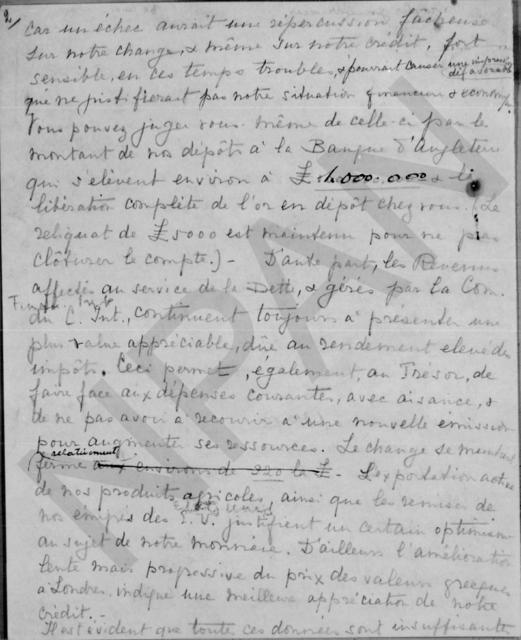 2/
car un échec aurait une répercussion fâcheuse
sur notre change, & même sur notre crédit, fort
sensible, en ces temps troublés, & pourrait causer une impression défavorable
que ne justifierait pas notre situation financière & économ.
Vous pouvez juger vous-même de celle-ci par le
montant de nos dépôts à la Banque d'Angleterre
qui s'élèvent environ à £ 000.000 & la
libération complète de l'or en dépôt chez vous. (Le
reliquat de £5000 est maintenu pour ne pas
clôturer le compte.) - D'autre part, les Revenus
affectés au service de la Dette, & gérés par la Com.
du C. Int., continuent toujours à présenter une
plus value appréciable, dûe au rendement elevé des
impôts. Ceci permet, également, au Trésor, de
faire face aux dépenses courantes, avec aisance, &
de ne pas avoir à recourir à une nouvelle emission
pour augmenter ses ressources. Le change se maintient
relativement
ferme aux environs de 220 la £ - L'exportation active
de nos produits agricoles, ainsi que les remises de
nos émigrés des E. U. justifient un certain optimisme
au sujet de notre monnaie. D'ailleurs l'amélioration
lente mais progressive du prix des valeurs grecques
à Londres, indique une meilleure appréciation de notre
crédit. -
Il est évident que toutes ces données sont insuffisantes
NPAN